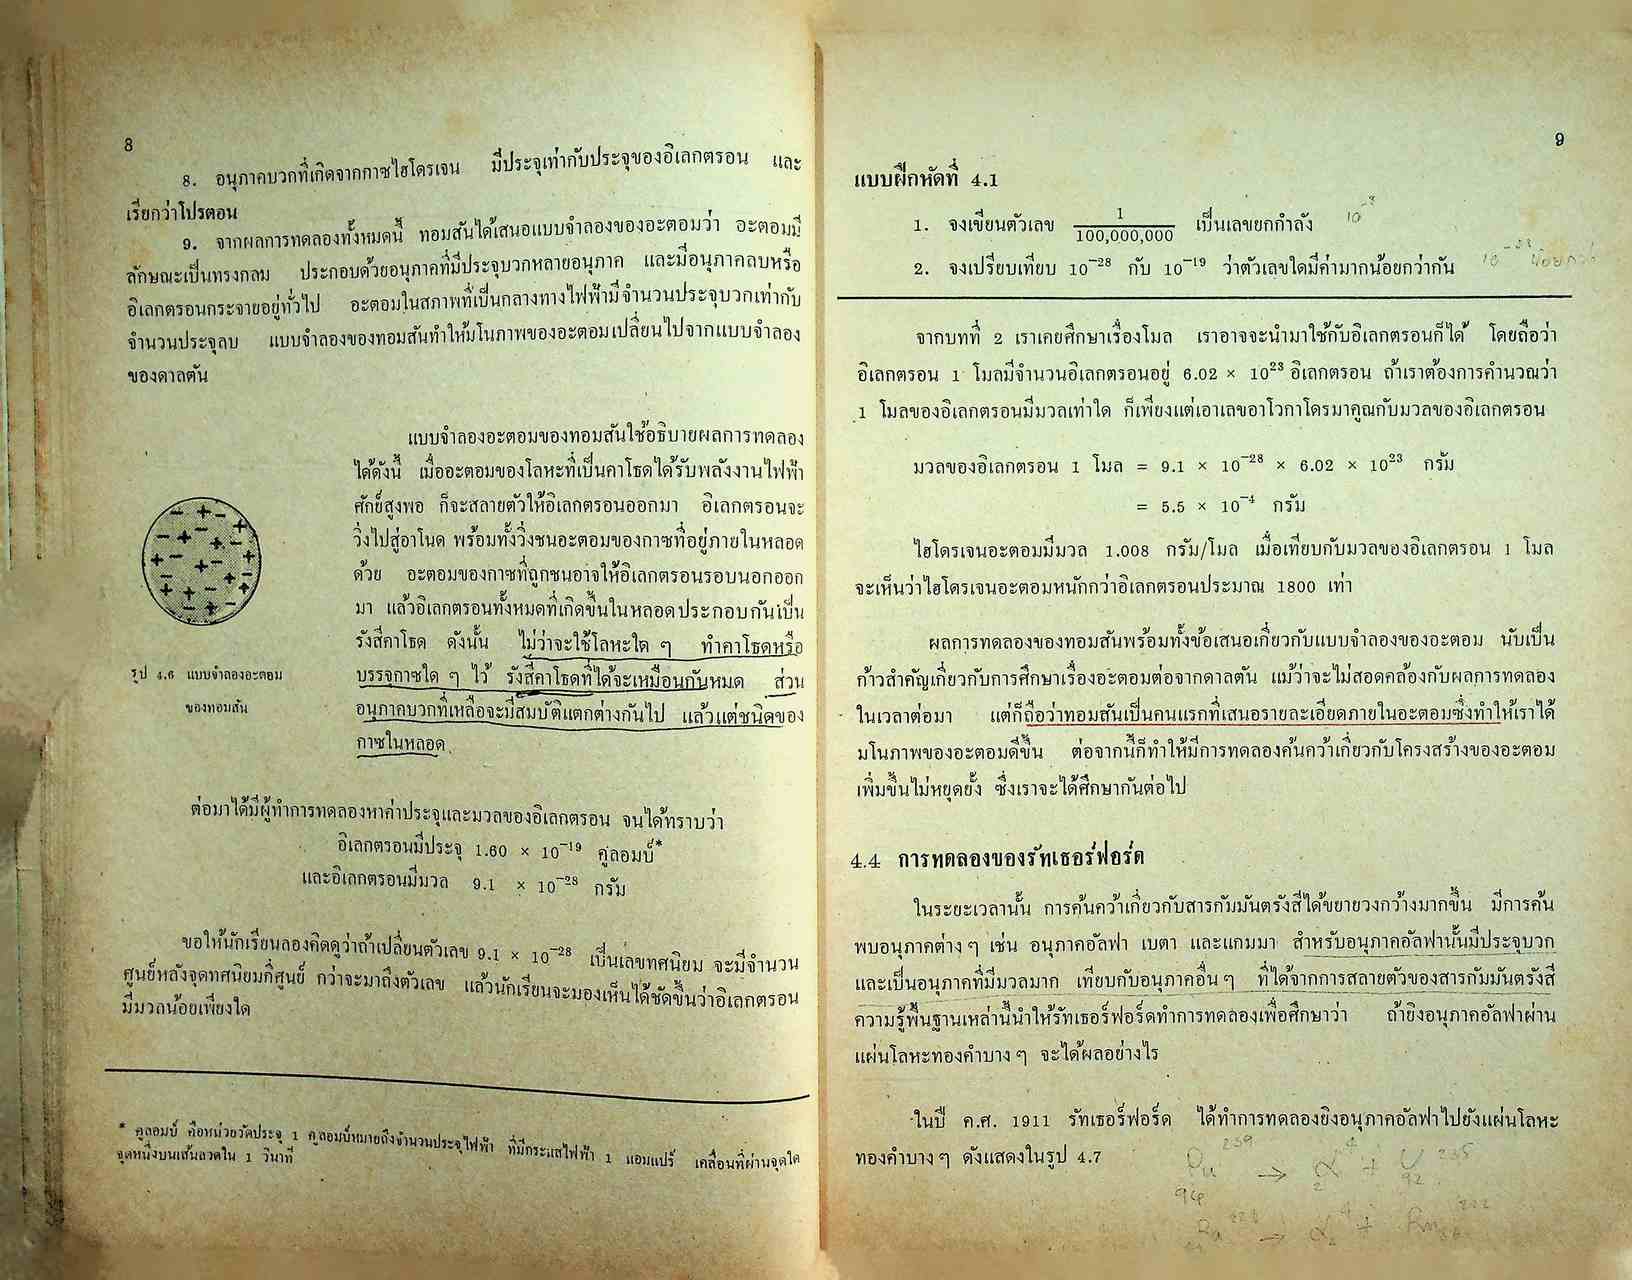 8
8. อนุภาคบวกที่เกิดจากกาซไฮโดรเจน มีประจุเท่ากับประจุของอิเลกตรอน และ
เรียกว่าโปรตอน
9. จากผลการทดลองทั้งหมดนี้ ทอมสันได้เสนอแบบจำลองของอะตอมว่า อะตอมมี
ลักษณะเป็นทรงกลม ประกอบด้วยอนุภาคที่มีประจุบวกหลายอนุภาค และมีอนุภาคลบหรือ
อิเลกตรอนกระจายอยู่ทั่วไป อะตอมในสภาพที่เป็นกลางทางไฟฟ้ามีจำนวนประจุบวกเท่ากับ
จำนวนประจุลบ แบบจำลองของทอมสันทำให้มโนภาพของอะตอมเปลี่ยนไปจากแบบจำลอง
ของดาลตัน
แบบจำลองอะตอมของทอมสันใช้อธิบายผลการทดลอง
ได้ดังนี้ เมื่ออะตอมของโลหะที่เป็นคาโธดได้รับพลังงานไฟฟ้า
ศักย์สูงพอ ก็จะสลายตัวให้อิเลกตรอนออกมา อิเลกตรอนจะ
วิ่งไปสู่อาโนด พร้อมทั้งวิ่งชนอะตอมของกาซที่อยู่ภายในหลอด
ด้วย อะตอมของกาซที่ถูกชนอาจให้อิเลกตรอนรอบนอกออก
มา แล้วอิเลกตรอนทั้งหมดที่เกิดขึ้นในหลอดประกอบกันเป็น
รังสีคาโธด ดังนั้น ไม่ว่าจะใช้โลหะใด ๆ ทำคาโธดหรือ
บรรจุกาซใด ๆ ไว้ รังสีคาโธดที่ได้จะเหมือนกันหมด ส่วน
อนุภาคบวกที่เหลือจะมีสมบัติแตกต่างกันไป แล้วแต่ชนิดของ
กาซในหลอด
รูป 4.6 แบบจำลองอะตอม
ของทอมสัน
ต่อมาได้มีผู้ทำการทดลองหาค่าประจุและมวลของอิเลกตรอน จนได้ทราบว่า
อิเลกตรอนมีประจุ 1.60 × 10⁻¹⁹ คูลอมบ์*
และอิเลกตรอนมีมวล 9.1 × 10⁻²⁸ กรัม
ขอให้นักเรียนลองคิดดูว่าถ้าเปลี่ยนตัวเลข 9.1 × 10⁻²⁸ เป็นเลขทศนิยม จะมีจำนวน
ศูนย์หลังจุดทศนิยมกี่ศูนย์ กว่าจะมาถึงตัวเลข แล้วนักเรียนจะมองเห็นได้ชัดขึ้นว่าอิเลกตรอน
มีมวลน้อยเพียงใด
* คูลอมบ์ คือหน่วยวัดประจุ 1 คูลอมบ์หมายถึงจำนวนประจุไฟฟ้า ที่มีกระแสไฟฟ้า 1 แอมแปร์ เคลื่อนที่ผ่านจุดใด
จุดหนึ่งบนเส้นลวดใน 1 วินาที
9
แบบฝึกหัดที่ 4.1
1. จงเขียนตัวเลข 1/100,000,000 เป็นเลขยกกำลัง 10⁻⁸
2. จงเปรียบเทียบ 10⁻²⁸ กับ 10⁻¹⁹ ว่าตัวเลขใดมีค่ามากน้อยกว่ากัน 10⁻²⁸ น้อยกว่า
จากบทที่ 2 เราเคยศึกษาเรื่องโมล เราอาจจะนำมาใช้กับอิเลกตรอนก็ได้ โดยถือว่า
อิเลกตรอน 1 โมลมีจำนวนอิเลกตรอนอยู่ 6.02 × 10²³ อิเลกตรอน ถ้าเราต้องการคำนวณว่า
1 โมลของอิเลกตรอนมีมวลเท่าใด ก็เพียงแต่เอาเลขอาโวกาโดรมาคูณกับมวลของอิเลกตรอน
มวลของอิเลกตรอน 1 โมล = 9.1 × 10⁻²⁸ × 6.02 × 10²³ กรัม
= 5.5 × 10⁻⁴ กรัม
ไฮโดรเจนอะตอมมีมวล 1.008 กรัม/โมล เมื่อเทียบกับมวลของอิเลกตรอน 1 โมล
จะเห็นว่าไฮโดรเจนอะตอมหนักกว่าอิเลกตรอนประมาณ 1800 เท่า
ผลการทดลองของทอมสันพร้อมทั้งข้อเสนอเกี่ยวกับแบบจำลองของอะตอม นับเป็น
ก้าวสำคัญเกี่ยวกับการศึกษาเรื่องอะตอมต่อจากดาลตัน แม้ว่าจะไม่สอดคล้องกับผลการทดลอง
ในเวลาต่อมา แต่ก็ถือว่าทอมสันเป็นคนแรกที่เสนอรายละเอียดภายในอะตอมซึ่งทำให้เราได้
มโนภาพของอะตอมดีขึ้น ต่อจากนี้ก็ทำให้มีการทดลองค้นคว้าเกี่ยวกับโครงสร้างของอะตอม
เพิ่มขึ้นไม่หยุดยั้ง ซึ่งเราจะได้ศึกษากันต่อไป
4.4 การทดลองของรัทเธอร์ฟอร์ด
ในระยะเวลานั้น การค้นคว้าเกี่ยวกับสารกัมมันตรังสีได้ขยายวงกว้างมากขึ้น มีการค้น
พบอนุภาคต่างๆ เช่น อนุภาคอัลฟา เบตา และแกมมา สำหรับอนุภาคอัลฟานั้นมีประจุบวก
และเป็นอนุภาคที่มีมวลมาก เทียบกับอนุภาคอื่นๆ ที่ได้จากการสลายตัวของสารกัมมันตรังสี
ความรู้พื้นฐานเหล่านี้นำให้รัทเธอร์ฟอร์ดทำการทดลองเพื่อศึกษาว่า ถ้ายิงอนุภาคอัลฟาผ่าน
แผ่นโลหะทองคำบางๆ จะได้ผลอย่างไร
ในปี ค.ศ. 1911 รัทเธอร์ฟอร์ด ได้ทำการทดลองยิงอนุภาคอัลฟาไปยังแผ่นโลหะ
ทองคำบางๆ ดังแสดงในรูป 4.7
₉₄Pu²³⁹ → ₂α⁴ + ₉₂U²³⁵